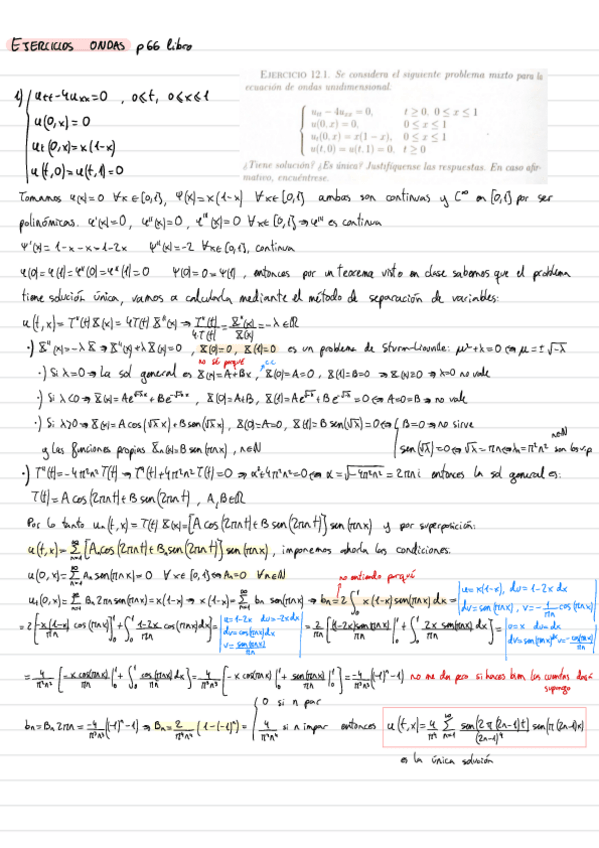 EJERCICIOS ONDAS p66 libro
EJERCICIO 12.1. Se considera el siguiente problema mixto para la
ecuación de ondas unidimensional.
u_tt − 4u_xx = 0, t ≥ 0, 0 ≤ x ≤ 1
u(0, x) = 0, 0 ≤ x ≤ 1
u_t(0, x) = x(1 − x), 0 ≤ x ≤ 1
u(t, 0) = u(t, 1) = 0, t ≥ 0
¿Tiene solución? ¿Es única? Justifíquense las respuestas. En caso afir-
mativo, encuéntrese.
1) u_tt − 4u_xx = 0 , 0 ≤ t, 0 ≤ x ≤ 1
u(0,x) = 0
u_t(0,x) = x(1-x)
u(t,0) = u(t,1) = 0
Tomamos φ(x) = 0 ∀x ∈ [0,1], Ψ(x) = x(1-x) ∀x ∈ [0,1] ambas son continuas y C^∞ en [0,1] por ser
polinómicas. φ'(x) = 0, φ''(x) = 0, φ'''(x) = 0 ∀x ∈ [0,1] ⇒ φ''' es continua
Ψ'(x) = 1-x-x = 1-2x Ψ''(x) = -2 ∀x ∈ [0,1], continua
φ(0) = φ(1) = φ''(0) = φ''(1) = 0 Ψ(0) = 0 = Ψ(1), entonces por un teorema visto en clase sabemos que el problema
tiene solución única, vamos a calcularla mediante el método de separación de variables:
u(t,x) = T''(t) X(x) = 4T(t) X''(x) ⇒ T''(t)/4T(t) = X''(x)/X(x) = -λ ∈ ℝ
·) X''(x) = -λX ⇒ X''(x) + λX(x) = 0 , X(0) = 0, X(1) = 0 es un problema de Sturm-Liouville: μ² + λ = 0 ⇔ μ = ±√-λ
no sé porqué
cc
·) Si λ = 0 ⇒ La sol general es X(x) = A + Bx , X(0) = A = 0 , X(1) = B = 0 ⇒ X(x) ≡ 0 ⇒ λ = 0 no vale
·) Si λ < 0 ⇒ X(x) = Ae^{√-λ x} + Be^{-√-λ x} , X(0) = A+B, X(1) = Ae^{√-λ} + Be^{-√-λ} = 0 ⇔ A = 0 = B ⇒ no vale
·) Si λ > 0 ⇒ X(x) = A cos(√λ x) + B sen(√λ x), X(0) = A = 0, X(1) = B sen(√λ) = 0 ⇔ B = 0 ⇒ no sirve
y las funciones propias X_n(x) = B sen(πnx) , n ∈ ℕ
sen(√λ) = 0 ⇔ √λ = πn ⇔ λ_n = π²n² son los v.p
n ∈ ℕ
·) T''(t) = -4π²n² T(t) ⇒ T''(t) + 4π²n² T(t) = 0 ⇒ α² + 4π²n² = 0 ⇔ α = √-4π²n² = 2πni entonces la sol general es:
T(t) = A cos(2πnt) + B sen(2πnt) , A, B ∈ ℝ
Por lo tanto u_n(t,x) = T(t) X(x) = [A cos(2πnt) + B sen(2πnt)] sen(πnx) y por superposición:
u(t,x) = Σ_{n=1}^∞ [A_n cos(2πnt) + B_n sen(2πnt)] sen(πnx) , imponemos ahora las condiciones:
u(0,x) = Σ_{n=1}^∞ A_n sen(πnx) = 0 ∀x ∈ [0,1] ⇔ A_n = 0 ∀n ∈ ℕ
no entiendo porqué
u_t(0,x) = Σ_{n=1}^∞ B_n 2πn sen(πnx) = x(1-x) ⇒ x(1-x) = Σ_{n=1}^∞ b_n sen(πnx) ⇒ b_n = 2∫_0^1 x(1-x) sen(πnx) dx =
u = x(1-x), du = 1-2x dx
dv = sen(πnx), v = -1/πn cos(πnx)
= 2[-x(1-x)/πn cos(πnx)|_0^1 + ∫_0^1 (1-2x)/πn cos(πnx) dx] =
u = 1-2x du = -2dx
dv = cos(πnx) dx
v = sen(πnx)/πn
= 2/πn [(1-2x)sen(πnx)/πn |_0^1 + ∫_0^1 2x sen(πnx)/πn dx] =
u = x du = dx
dv = sen(πnx) dx v = -cos(πnx)/πn
= 4/π²n² [-x cos(πnx)/πn |_0^1 + ∫_0^1 cos(πnx)/πn dx] = 4/π³n³ [-x cos(πnx)|_0^1 + sen(πnx)/πn |_0^1] = -4/π³n³ ((-1)^n - 1)
no me da pero si haces bien las cuentas dará
supongo
b_n = B_n 2πn = -4/π³n³ ((-1)^n - 1) ⇒ B_n = 2/π⁴n⁴ (1 - (-1)^n) =
0 si n par
4/π⁴n⁴ si n impar
entonces u(t,x) = 4/π⁴ Σ_{n=1}^∞ sen(2π(2n-1)t)/(2n-1)⁴ sen(π(2n-1)x)
es la única solución